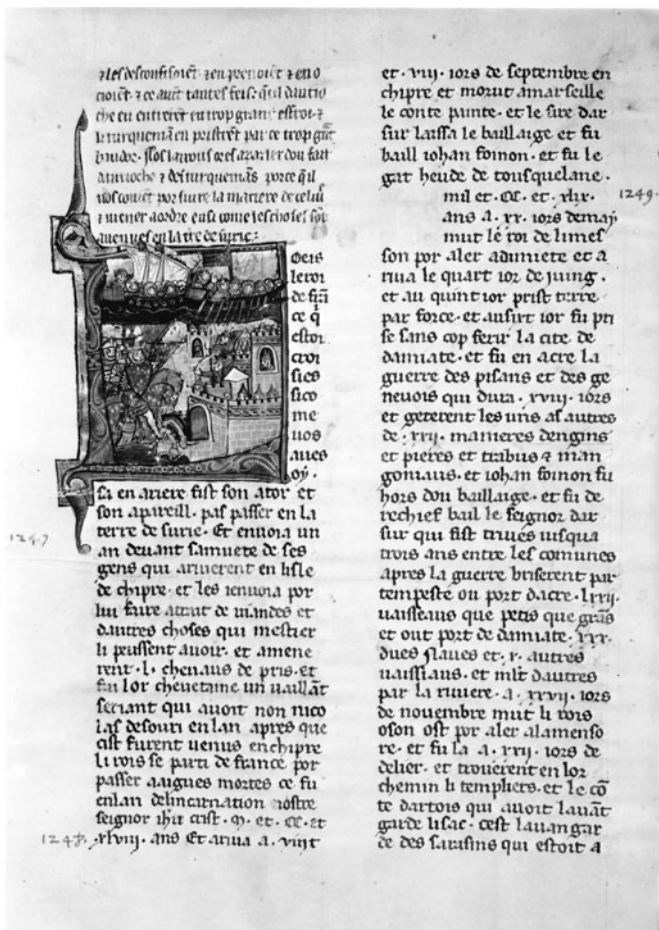 ⁊ les desconfisoiēt ⁊ en prenoiēt ⁊ en o
cioiēt ⁊ ce auīt tantes feis q̄l dantio
che en entrerēt en trop grant effroi ⁊
li turquemā en pristrēt par ce trop grāt
dantioche ⁊ des turquemans porce q̄l
nos couiēt por siure la matiere de celui
⁊ mener a ordre ensi come les choses sōt
auenues en la t̄re de surie
oeis
le roi
de frā
ce q̄
estoit
croi
sies
si co
me
uos
aues
oy ·
sa en ariere fist son ator et
son apareill · pas passer en la
terre de surie · Et enuoia un
an deuant sa muete de ses
gens qui ariuerent en lisle
de chipre · et les enuoia por
lui faire atrait de uiandes et
dautres choses qui mestier
li peussent auoir · et amene
rent · l · cheuaus de pris · et
fu lor cheuetaine un uaillāt
seriant qui auoit non nico
las de souri en lan apres que
cist furent uenus en chipre
li rois se parti de france por
passer aigues mortes ce fu
en lan de lincarnation nostre
seignor ihū crist · M · et · CC · et
1248 · xlviii · ans Et ariua a · viiit
1247
et · viii · iors de septembre en
chipre et morut a marseille
le conte painte · et le sire dar
sur laissa le baillaige et fu
baill iohan foinon · et fu le
gat heude de tousquelane ·
mil et · CC · et · xlix · 1249
ans a · xx · iors de maj
mut le roi de limes
son por aler a damiete et a
riua le quart ior de juing ·
et au quint ior prist terre
par force · et au sizt ior fu pri
se sans cop ferir la cite de
damiate · et fu en acre la
guerre des pisans et des ge
neuois qui dura · xviii · iors
et geterent les uns as autres
de · xxii · manieres dengins
et pieres et trabus ⁊ man
goniaus · et iohan foinon fu
hors dou baillaige · et fu de
rechief bail le seignor dar
sur qui fist triues iusqua
trois ans entre les comunes
apres la guerre briserent par
tempeste ou port dacre · lxxii ·
uaisseaus que petis que grās
et out port de damiate · xxx ·
dues naues et · x · autres
uaissiaus · et mlt dautres
par la riuiere · a · xxvii · iors
de nouembre mut li rois
o son ost por aler a la menso
re · et fu la a · xxii · iors de
delier · et trouerent en lor
chemin li templiers · et le cō
te dartois qui auoit lauāt
garde lisac · cest lauangar
de des sarasins qui estoit a